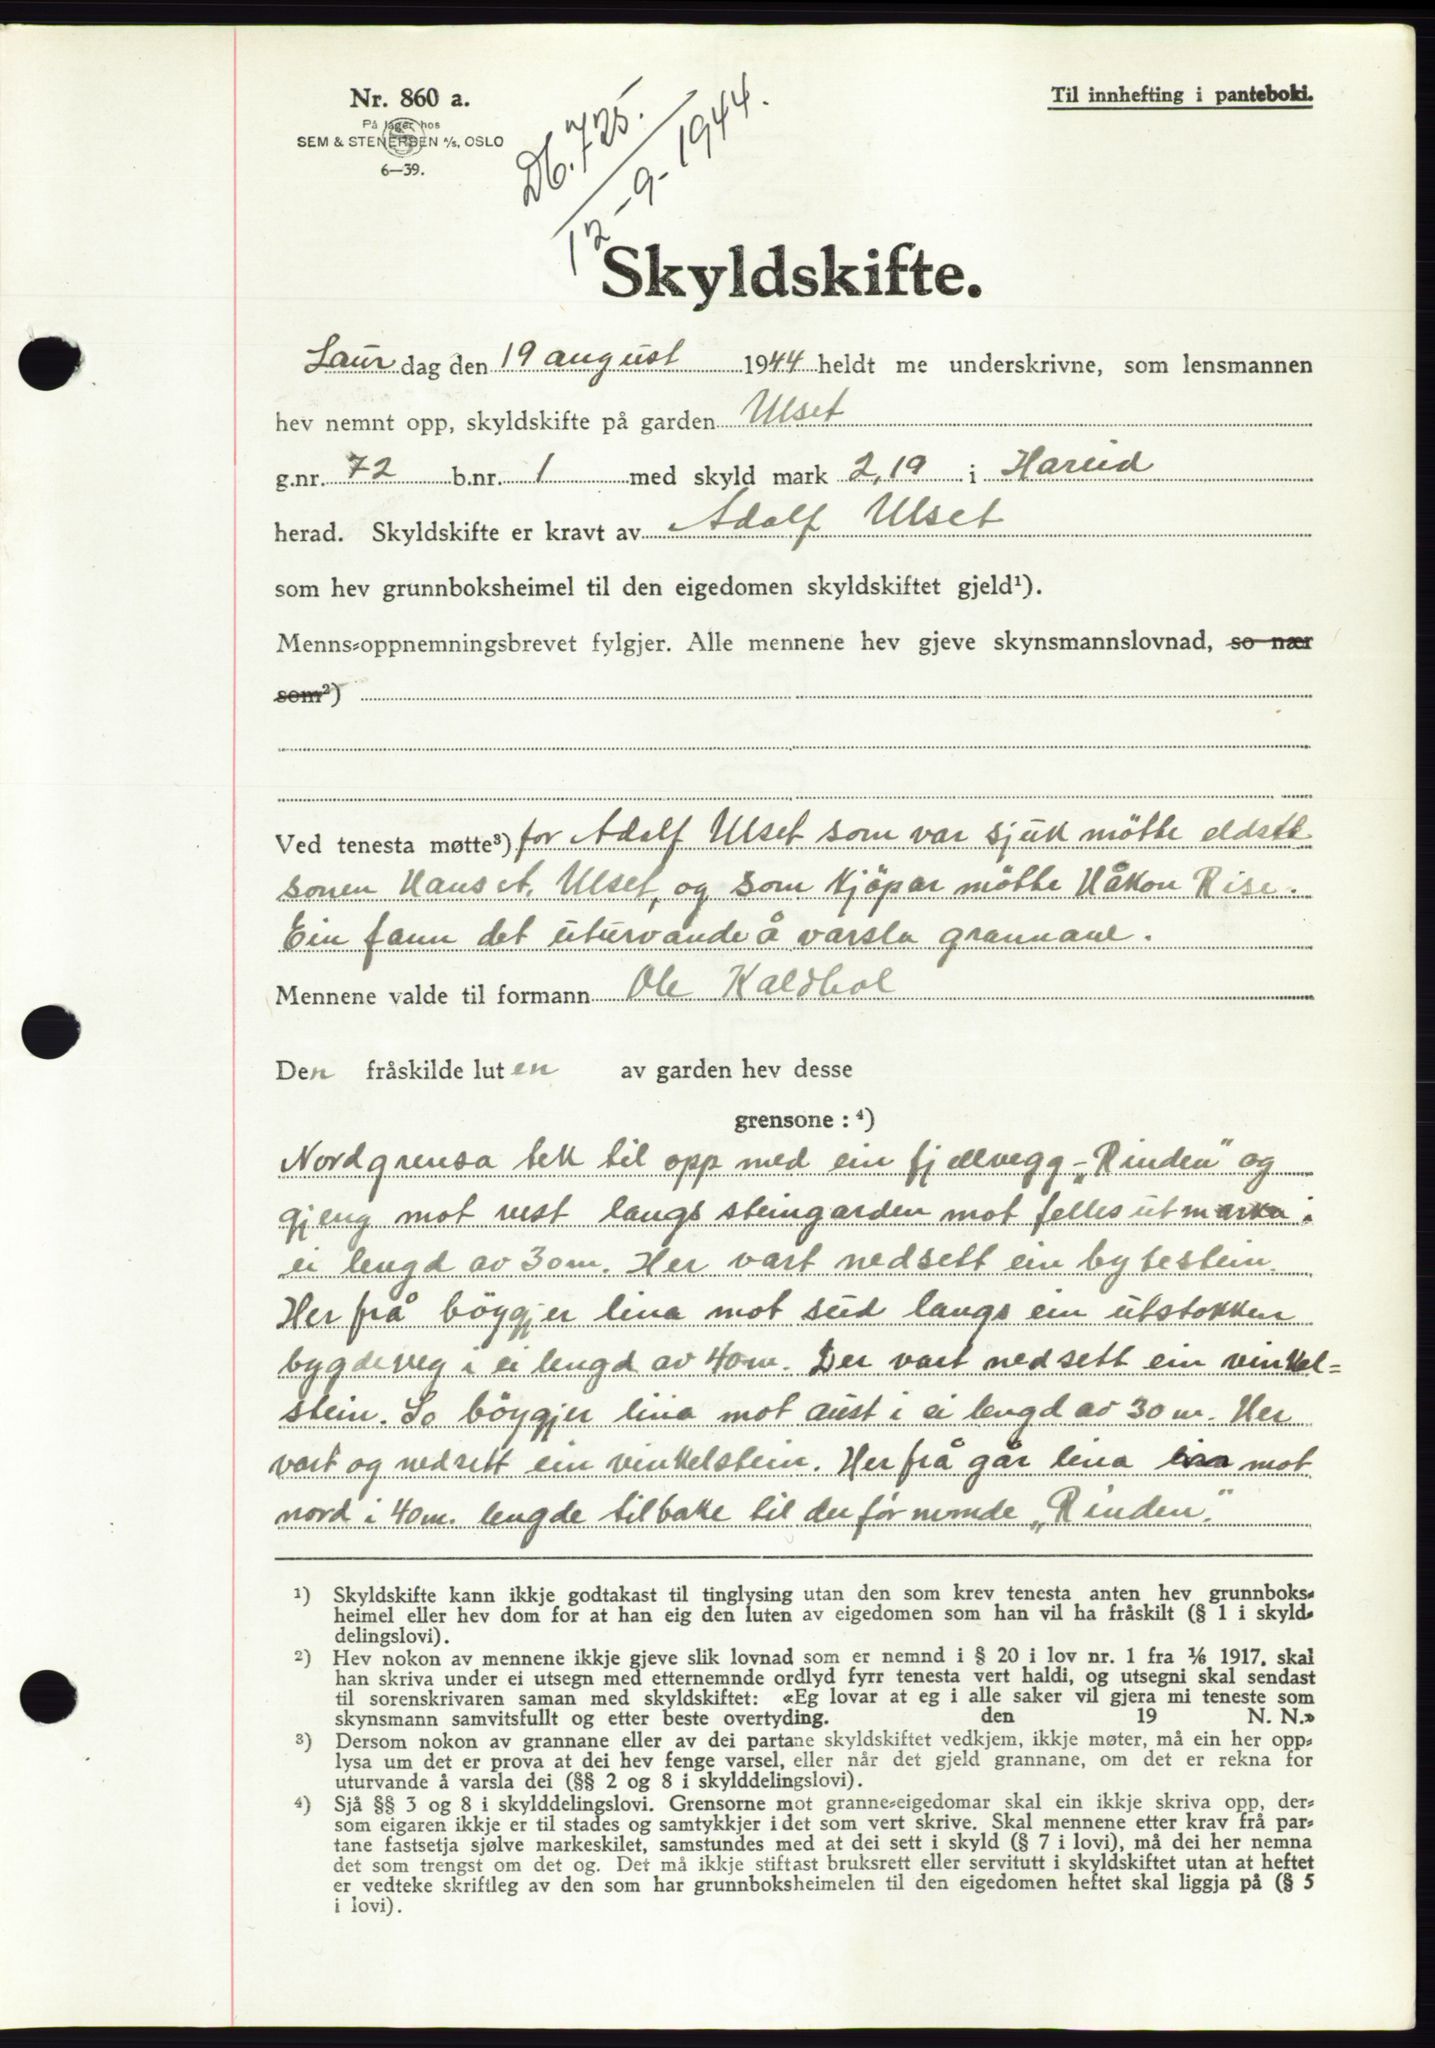 Nr. 860 a.
På lager hos
SEM & STENERSEN A/S, OSLO
6—39.
Db. 725.
12-9-1944.
Til innhefting i panteboki.
Skyldskifte.
Laurdag den 19 august 1944 heldt me underskrivne, som lensmannen
hev nemnt opp, skyldskifte på garden Ulset
g.nr. 72 b.nr. 1 med skyld mark 2,19 i Hareid
herad. Skyldskifte er kravt av Adolf Ulset
som hev grunnboksheimel til den eigedomen skyldskiftet gjeld¹).
Menns-oppnemningsbrevet fylgjer. Alle mennene hev gjeve skynsmannslovnad, so nær
som²)
Ved tenesta møtte³) for Adolf Ulset som var sjuk mötte eldste
sonen Hans A. Ulset, og som kjöpar mötte Håkon Rise.
Ein fann det uturvande å varsla grannane.
Mennene valde til formann Ole Kaldhol
Den fråskilde luten av garden hev desse
grensone : ⁴)
Nordgrensa tek til opp med ein fjellvegg - "Rinden" og
gjeng mot vest langs steingarden mot felles utmarka i
ei lengd av 30 m. Her vart nedsett ein bytestein.
Her frå böygjer lina mot sud langs ein utstokken
bygdeveg i ei lengd av 40 m. Der vart nedsett ein vinkel=
stein. So böygjer lina mot aust i ei lengd av 30 m. Her
vart og nedsett ein vinkelstein. Her frå går lina mot
nord i 40 m. lengde tilbake til den för nemnde "Rinden".
¹) Skyldskifte kann ikkje godtakast til tinglysing utan den som krev tenesta anten hev grunnboks-
heimel eller hev dom for at han eig den luten av eigedomen som han vil ha fråskilt (§ 1 i skyld-
delingslovi).
²) Hev nokon av mennene ikkje gjeve slik lovnad som er nemnd i § 20 i lov nr. 1 fra 1/6 1917, skal
han skriva under ei utsegn med etternemnde ordlyd fyrr tenesta vert haldi, og utsegni skal sendast
til sorenskrivaren saman med skyldskiftet: «Eg lovar at eg i alle saker vil gjera mi teneste som
skynsmann samvitsfullt og etter beste overtyding. den 19 N. N.»
³) Dersom nokon av grannane eller av dei partane skyldskiftet vedkjem, ikkje møter, må ein her opp-
lysa um det er prova at dei hev fenge varsel, eller når det gjeld grannane, om det er rekna for
uturvande å varsla dei (§§ 2 og 8 i skylddelingslovi).
⁴) Sjå §§ 3 og 8 i skylddelingslovi. Grensorne mot granne-eigedomar skal ein ikkje skriva opp, der-
som eigaren ikkje er til stades og samtykkjer i det som vert skrive. Skal mennene etter krav frå par-
tane fastsetja sjølve markeskilet, samstundes med at dei sett i skyld (§ 7 i lovi), må dei her nemna
det som trengst om det og. Det må ikkje stiftast bruksrett eller servitutt i skyldskiftet utan at heftet
er vedteke skriftleg av den som har grunnboksheimelen til den eigedomen heftet skal liggja på (§ 5
i lovi).